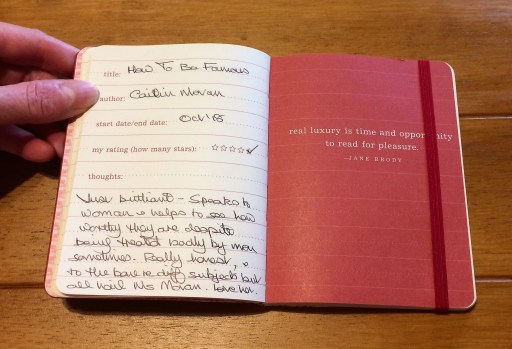 title: How To Be Famous
author: Caitlin Moran
start date/end date: Oct '18
my rating (how many stars): ☆☆☆☆✓
thoughts:
Just brilliant - Speaks to
women & helps to see how
worthy they are despite
being treated badly by men
sometimes. Really honest,
to the bare re diff subjects but
all hail Ms Moran. Love her.
real luxury is time and opportunity
to read for pleasure.
–JANE BRODY